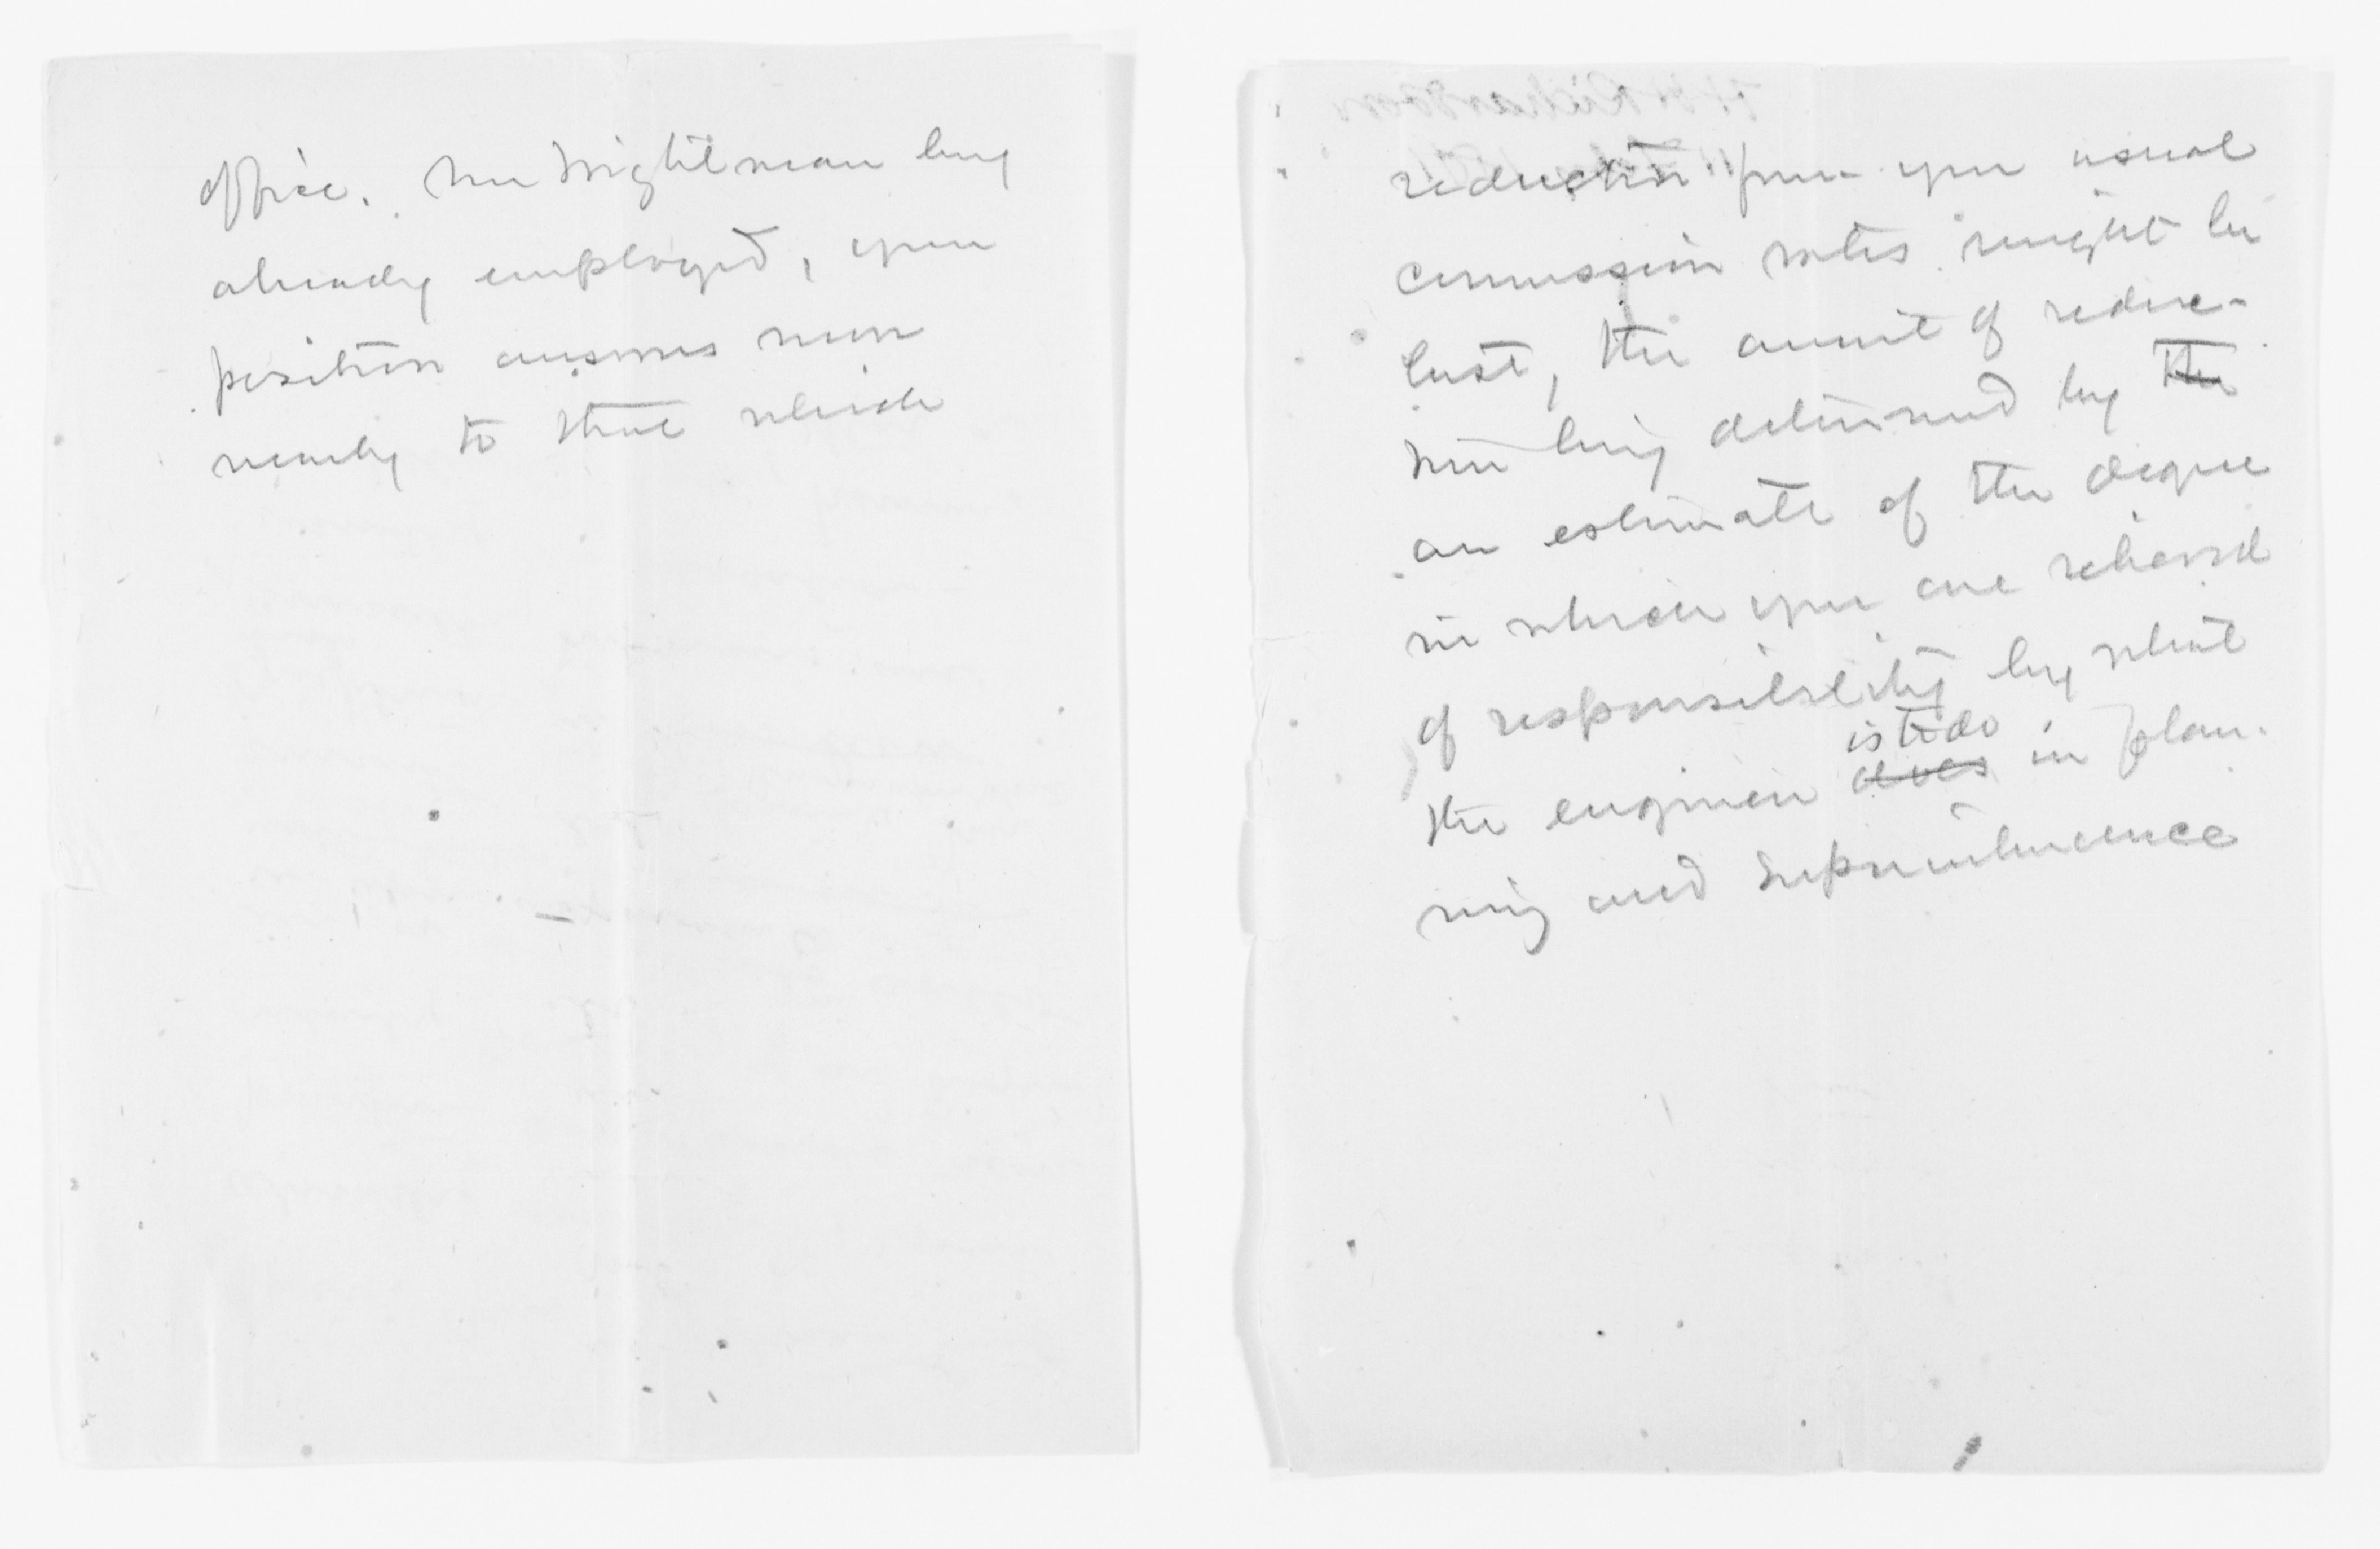 office. Mr Wightman being
already employed, your
position answers more
nearly to that which
reduction from your usual
commission rates might be
best, the amount of reduc-
tion being determined by the
an estimate of the degree
in which you are relieved
of responsibility by what
is to do
the engineer does in plan-
ning and superintendence
H. H. Richardson